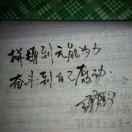 拼搏到无能为力
奋斗到自己感动